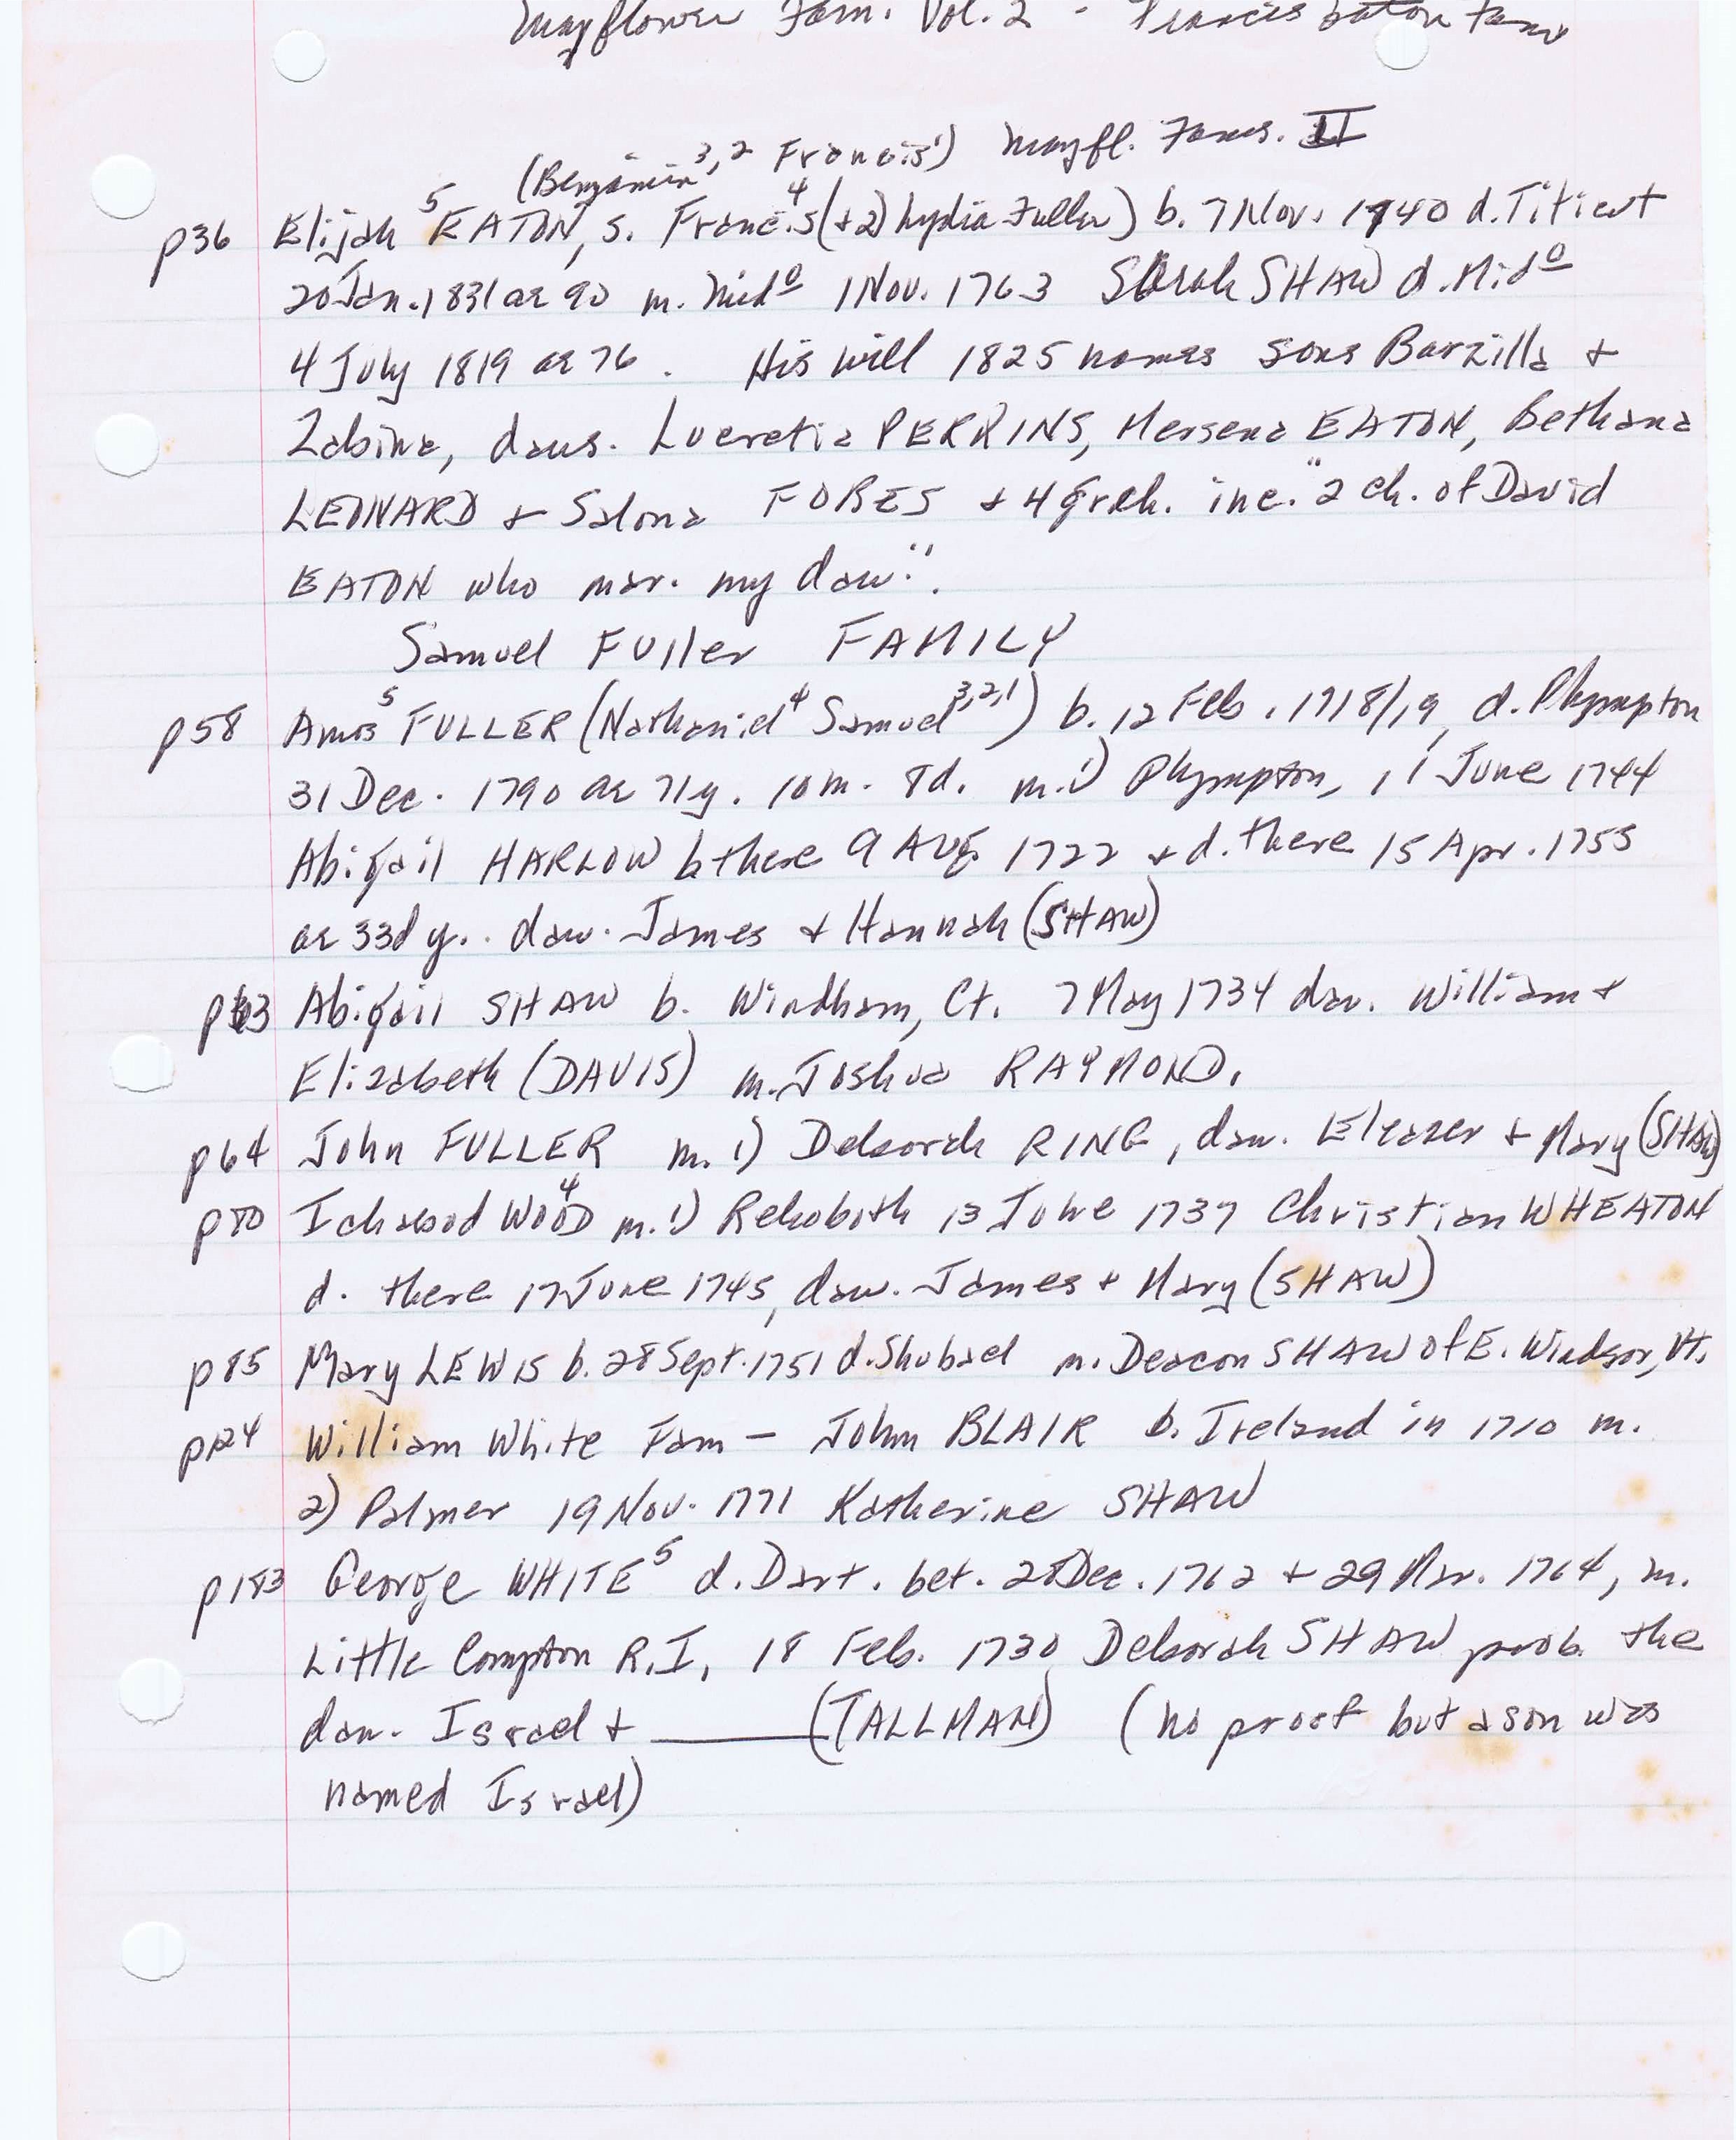 Mayflower Fam. Vol. 2 - Francis Eaton Fam
(Benjamin3,2 Francis1) Mayfl. Fams. II
p36 Elijah5 EATON, s. Francis4 (+2) Lydia Fuller) b. 7 Nov. 1740 d. Titicut
20 Jan. 1831 ae 90 m. Mido 1 Nov. 1763 Sarah SHAW d. Mido
4 July 1819 ae 76. His will 1825 names sons Barzilla +
Zabina, daus. Lucretia PERKINS, Mersena EATON, Bethana
LEONARD + Salona FOBES + 4 grch. inc. "2 ch. of David
EATON who mar. my dau.".
Samuel Fuller FAMILY
p58 Amos5 FULLER (Nathaniel4 Samuel3,2,1) b. 12 Feb. 1718/19, d. Plympton
31 Dec. 1790 ae 71y. 10m. 8d. m. 1) Plympton, 11 June 1744
Abigail HARLOW b there 9 Aug 1722 + d. there 15 Apr. 1755
ae 33d y.. dau. James + Hannah (SHAW)
p63 Abigail SHAW b. Windham, Ct. 7 May 1734 dau. William +
Elizabeth (DAVIS) m. Joshua RAYMOND.
p64 John FULLER m. 1) Deborah RING, dau. Eleazer + Mary (SHAW)
p80 Ichabod WOOD4 m. 1) Rehoboth 13 June 1737 Christian WHEATON
d. there 17 June 1745, dau. James + Mary (SHAW)
p85 Mary LEWIS b. 28 Sept. 1751 d. Shubael m. Deacon SHAW of E. Windsor, Vt.
p124 William White Fam - John BLAIR b. Ireland in 1710 m.
2) Palmer 19 Nov. 1771 Katherine SHAW
p183 George WHITE5 d. Dart. bet. 28 Dec. 1762 + 29 Mar. 1764, m.
Little Compton R.I, 18 Feb. 1730 Deborah SHAW prob. the
dau. Israel + ______ (TALLMAN) (no proof but a son was
named Israel)